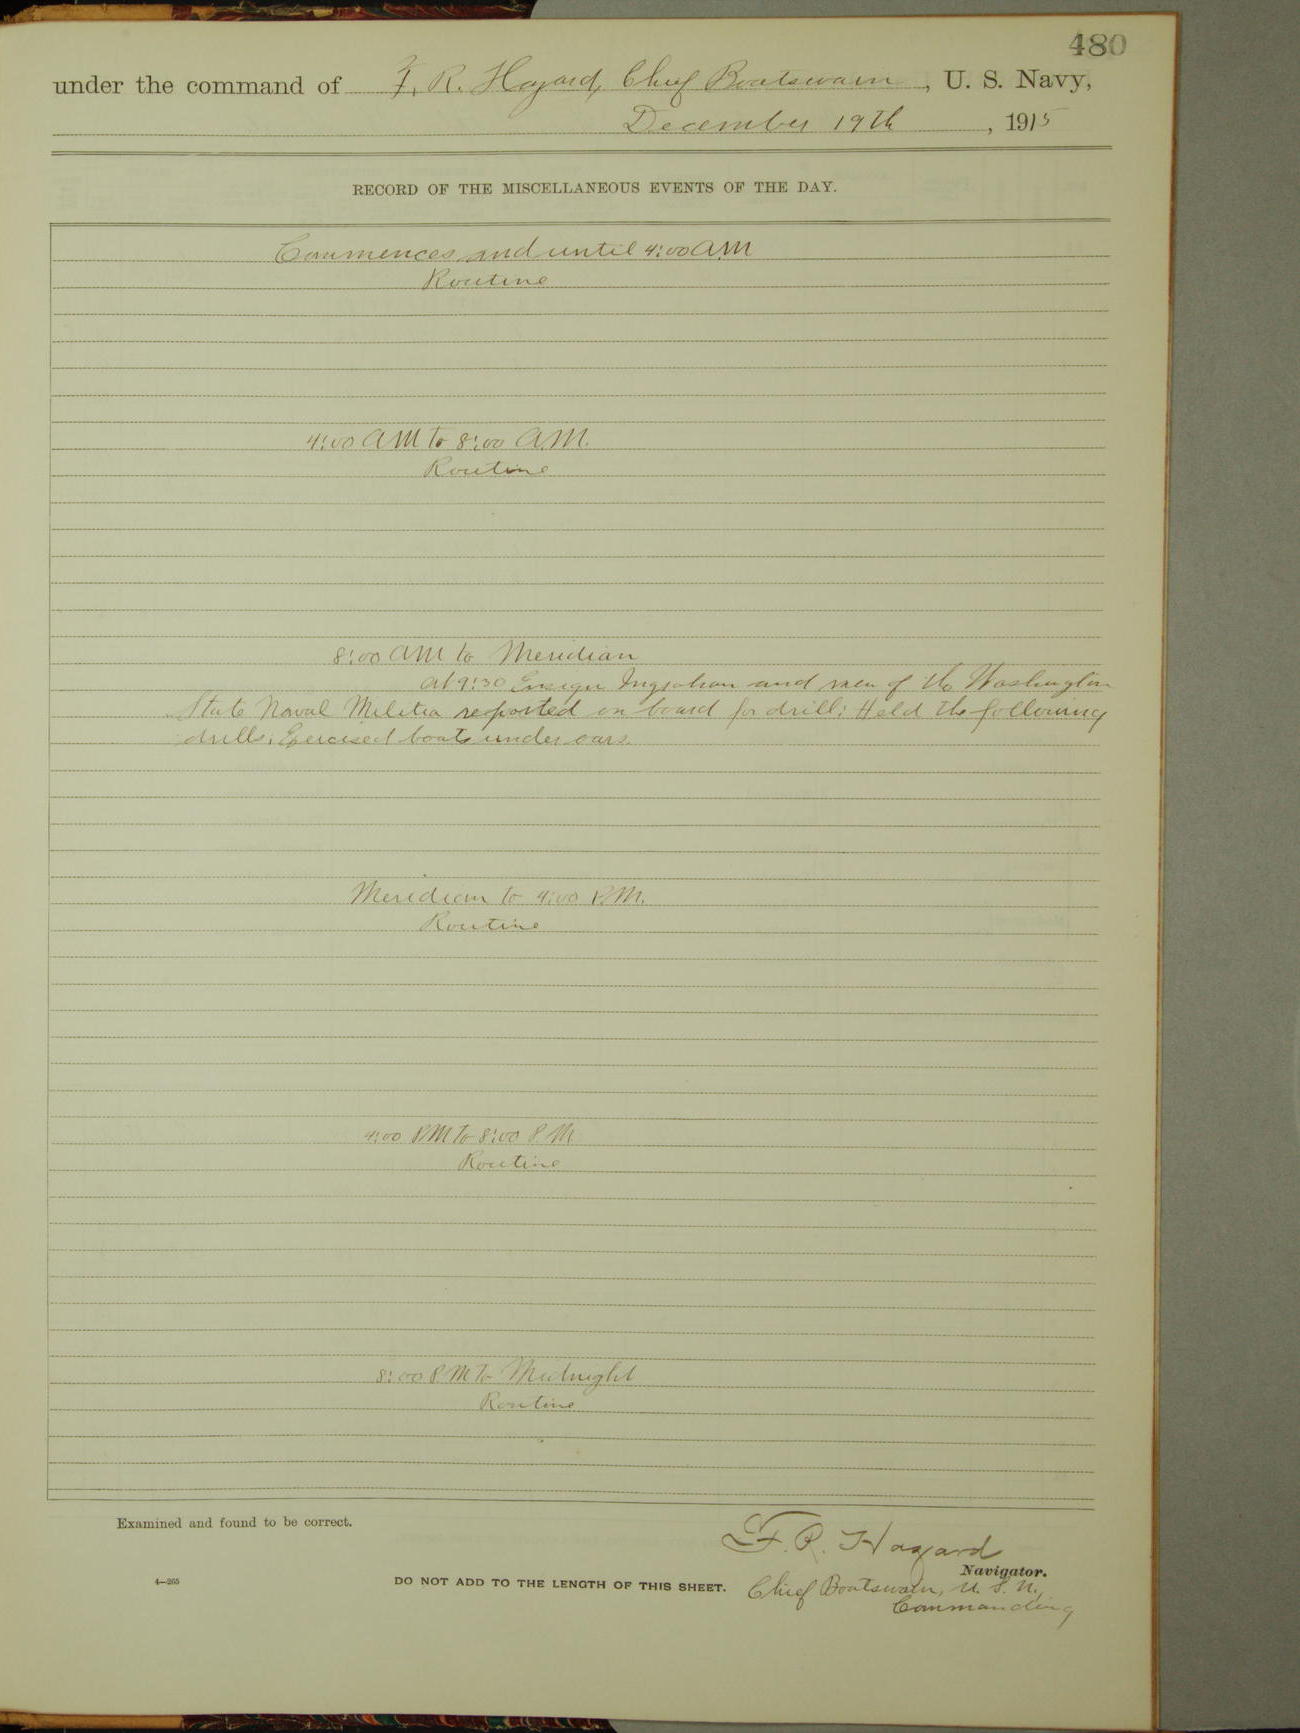 480
under the command of F. R. Hazard, Chief Boatswain, U. S. Navy,
December 19th, 1915
RECORD OF THE MISCELLANEOUS EVENTS OF THE DAY.
Commences and until 4:00 A.M
Routine
4:00 A.M to 8:00 A.M.
Routine
8:00 A.M to Meridian
At 9:30 Ensign and men of the Washington
State Naval Militia reported on board for drill; Held the following
drills; Exercised boats under oars.
Meridian to 4:00 P.M.
Routine
4:00 P.M to 8:00 P.M
Routine
8:00 P.M to Midnight
Routine
Examined and found to be correct.
F. R. Hazard
Navigator.
4—265
DO NOT ADD TO THE LENGTH OF THIS SHEET.
Chief Boatswain, U. S. N.,
Commanding